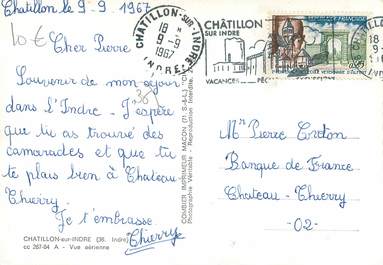 Chatillon le 9. 9. 1967
10€
Cher Pierre
Souvenir de mon séjour
dans L'Indre. J'espère
que tu as trouvé des
camarades et que tu
te plais bien à Chateau-
Thierry.
Je t'embrasse
Thierry
CHATILLON-sur-INDRE (36. Indre)
cc 267-84 A - Vue aérienne
COMBIER IMPRIMEUR MACON (71 S.-&-L.)
Photographie Véritable - Reproduction Interdite
CHATILLON-SUR-INDRE
18 H
9-9
1967
INDRE
CHÂTILLON
SUR INDRE
VACANCES
RÉPUBLIQUE FRANÇAISE
18
9-9
Mr Pierre
Banque de France
Chateau-Thierry
-02-